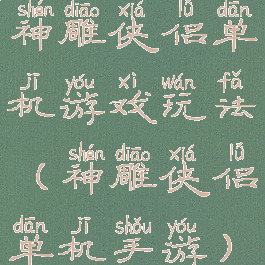 shén diāo xiá lǚ dān
神雕侠侣单
jī yóu xì wán fǎ
机游戏玩法
shén diāo xiá lǚ
（神雕侠侣
dān jī shǒu yóu
单机手游）